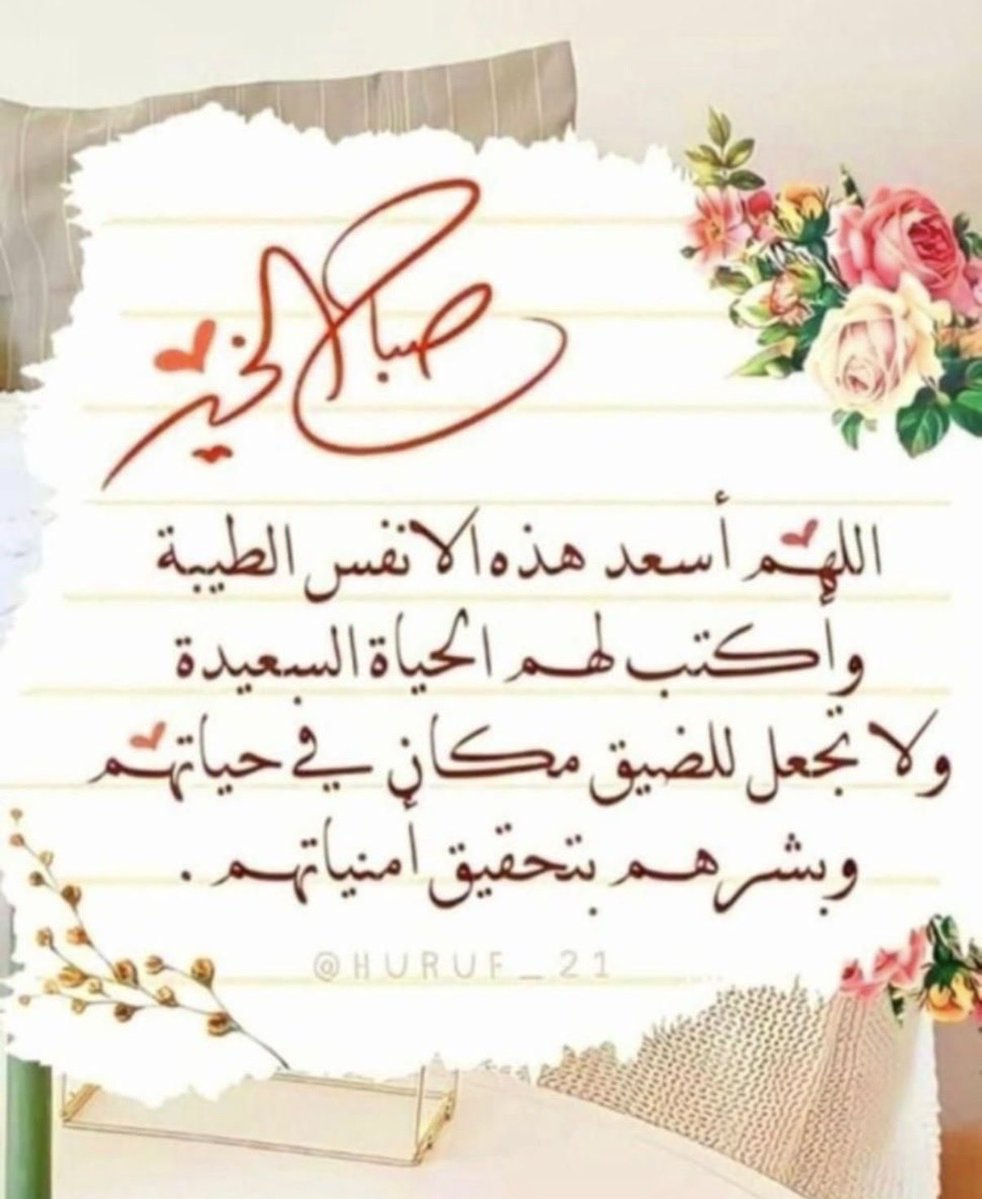 صباح الخير
اللهم أسعد هذه الانفس الطيبة
وأكتب لهم الحياة السعيدة
ولا تجعل للضيق مكان في حياتهم
وبشرهم بتحقيق أمنياتهم .
@HURUF_21